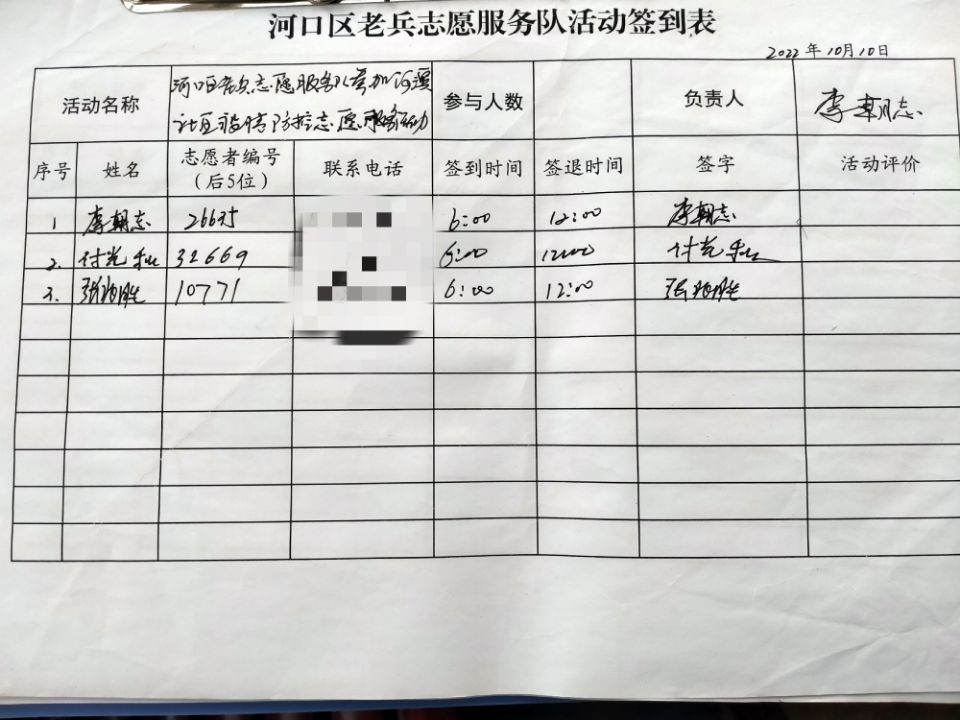 河口区老兵志愿服务队活动签到表
2022年10月10日
活动名称 河口区老兵志愿服务队参加河滨 参与人数 负责人 李朝志
社区疫情防控志愿服务活动
序号 姓名 志愿者编号 联系电话 签到时间 签退时间 签字 活动评价
（后5位）
1 李朝志 6:00 12:00 李朝志
2. 付光 32669 6:00 12:00 付光
3. 张 10771 6:00 12:00 张